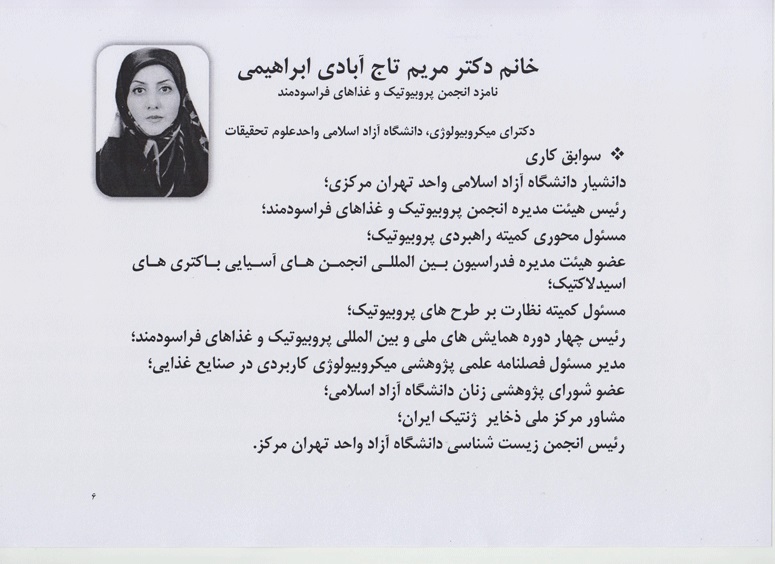 خانم دکتر مریم تاج آبادی ابراهیمی
نامزد انجمن پروبیوتیک و غذاهای فراسودمند
دکترای میکروبیولوژی، دانشگاه آزاد اسلامی واحدعلوم تحقیقات
❖ سوابق کاری
دانشیار دانشگاه آزاد اسلامی واحد تهران مرکزی؛
رئیس هیئت مدیره انجمن پروبیوتیک و غذاهای فراسودمند؛
مسئول محوری کمیته راهبردی پروبیوتیک؛
عضو هیئت مدیره فدراسیون بین المللی انجمن های آسیایی باکتری های
اسیدلاکتیک؛
مسئول کمیته نظارت بر طرح های پروبیوتیک؛
رئیس چهار دوره همایش های ملی و بین المللی پروبیوتیک و غذاهای فراسودمند؛
مدیر مسئول فصلنامه علمی پژوهشی میکروبیولوژی کاربردی در صنایع غذایی؛
عضو شورای پژوهشی زنان دانشگاه آزاد اسلامی؛
مشاور مرکز ملی ذخایر ژنتیک ایران؛
رئیس انجمن زیست شناسی دانشگاه آزاد واحد تهران مرکز.
۶